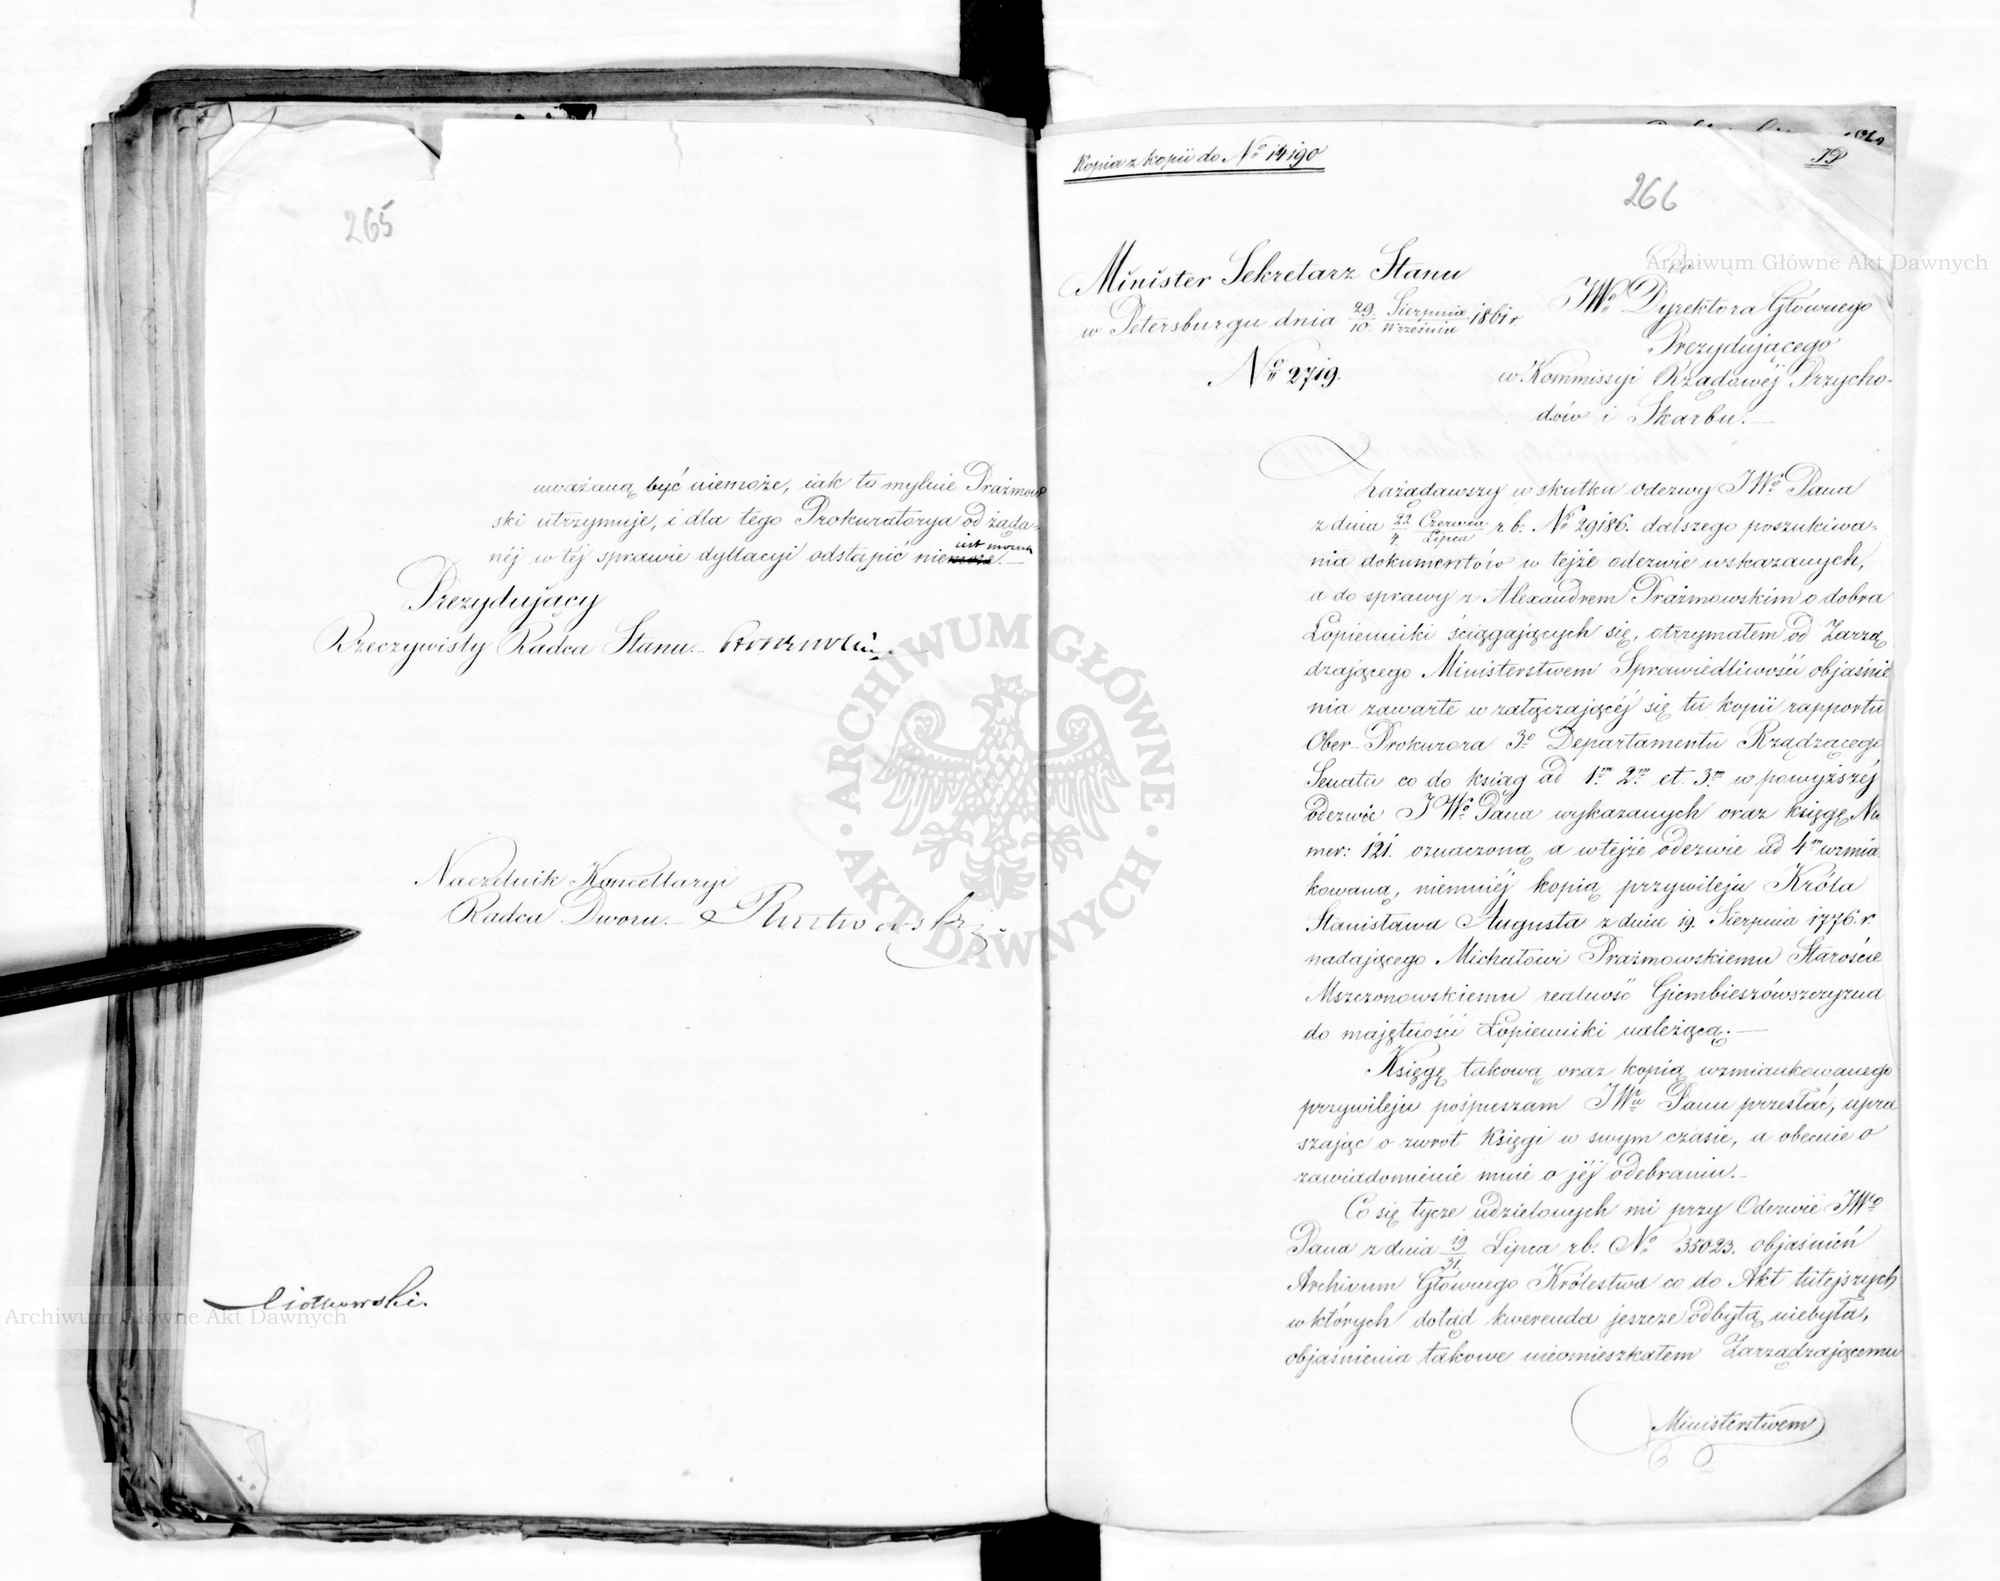 265
uważaną być niemoże, iak to mylnie Prażmow
ski utrzymuje, i dla tego Prokuratorya od żąda-
néj w téj sprawie dyllacyi odstąpić nie iest mocna
Prezydujący
Rzeczywisty Radca Stanu.-
Naczelnik Kancellaryi
Radca Dworu.-
Ciotkowski.
Kopia z kopii do No 14190
19
266
Minister Sekretarz Stanu
w Petersburgu dnia 29 Sierpnia / 10 Września 1861 r.
No 2719.
Do
JWo Dyrektora Głównego
Prezydującego
w Kommissyi Rządowéj Przycho-
dów i Skarbu.-
Zażądawszy w skutku odezwy JWo Pana
z dnia 22 Czerwca / 4 Lipca r.b. No 29186. dalszego poszukiwa-
nia dokumentów w tejże odezwie wskazanych,
a do sprawy z Alexandrem Prażmowskim o dobra
Łopienniki ściągających się, otrzymałem od Zarzą
dzającego Ministerstwem Sprawiedliwości objaśnie
nia zawarte w załączającéj się tu kopii rapportu
Ober-Prokurora 3o Departamentu Rządzącego
Senatu co do ksiąg ad 1m 2m et 3m w powyższéj
odezwie JWo Pana wykazanych oraz księgę Nu
mer: 121. oznaczoną a w tejże odezwie ad 4m wzmia
kowaną, niemniéj kopią przywileju Króla
Stanisława Augusta z dnia 19. Sierpnia 1776. r.
nadającego Michałowi Prażmowskiemu Staroście
Mszczonowskiemu realność Giembieszówszczyzna
do majętności Łopienniki należącą.-
Księgę takową oraz kopią wzmiankowanego
przywileju pośpieszam JWu Panu przesłać, upra
szając o zwrot księgi w swym czasie, a obecnie o
zawiadomienie mnie o jéj odebraniu.-
Co się tycze udzielonych mi przy Odezwie JWo
Pana z dnia 19/31. Lipca r.b. No 35023. objaśnień
Archiwum Głównego Królestwa co do Akt tutejszych
w których dotąd kwerenda jeszcze odbytą niebyła,
objaśnienia takowe nieomieszkałem Zarządzającemu
Ministerstwem
ARCHIWUM GŁÓWNE AKT DAWNYCH
Archiwum Główne Akt Dawnych
Archiwum Główne Akt Dawnych